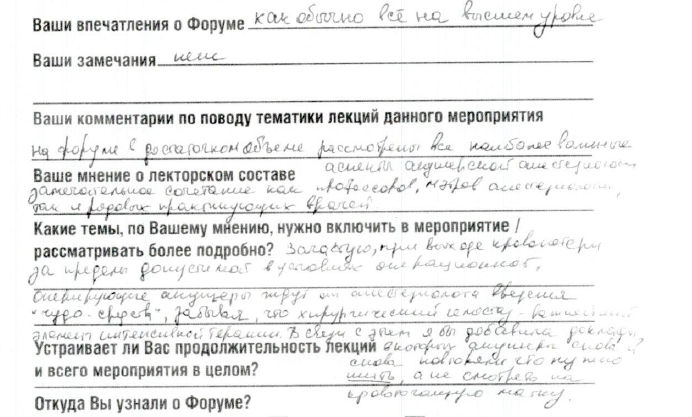 Ваши впечатления о Форуме как обычно всё на высшем уровне
Ваши замечания нет
Ваши комментарии по поводу тематики лекций данного мероприятия
на форуме в достаточном объеме рассмотрены все наиболее важные
аспекты акушерской анестезиологии
Ваше мнение о лекторском составе
замечательное сочетание как профессоров, мэтров анестезиологии,
так и рядовых практикующих врачей
Какие темы, по Вашему мнению, нужно включить в мероприятие /
рассматривать более подробно? Зачастую, при выходе кровопотери
за пределы допустимой в условиях операционной,
оперирующие акушеры ждут от анестезиолога введения
"чудо-средств", забывая, что хирургический гемостаз - важнейший
элемент интенсивной терапии. В связи с этим я бы добавила доклады
Устраивает ли Вас продолжительность лекций в которых акушерам снова и
и всего мероприятия в целом? снова повторяли что нужно
шить, а не смотреть на
Откуда Вы узнали о Форуме? кровоточащую матку.